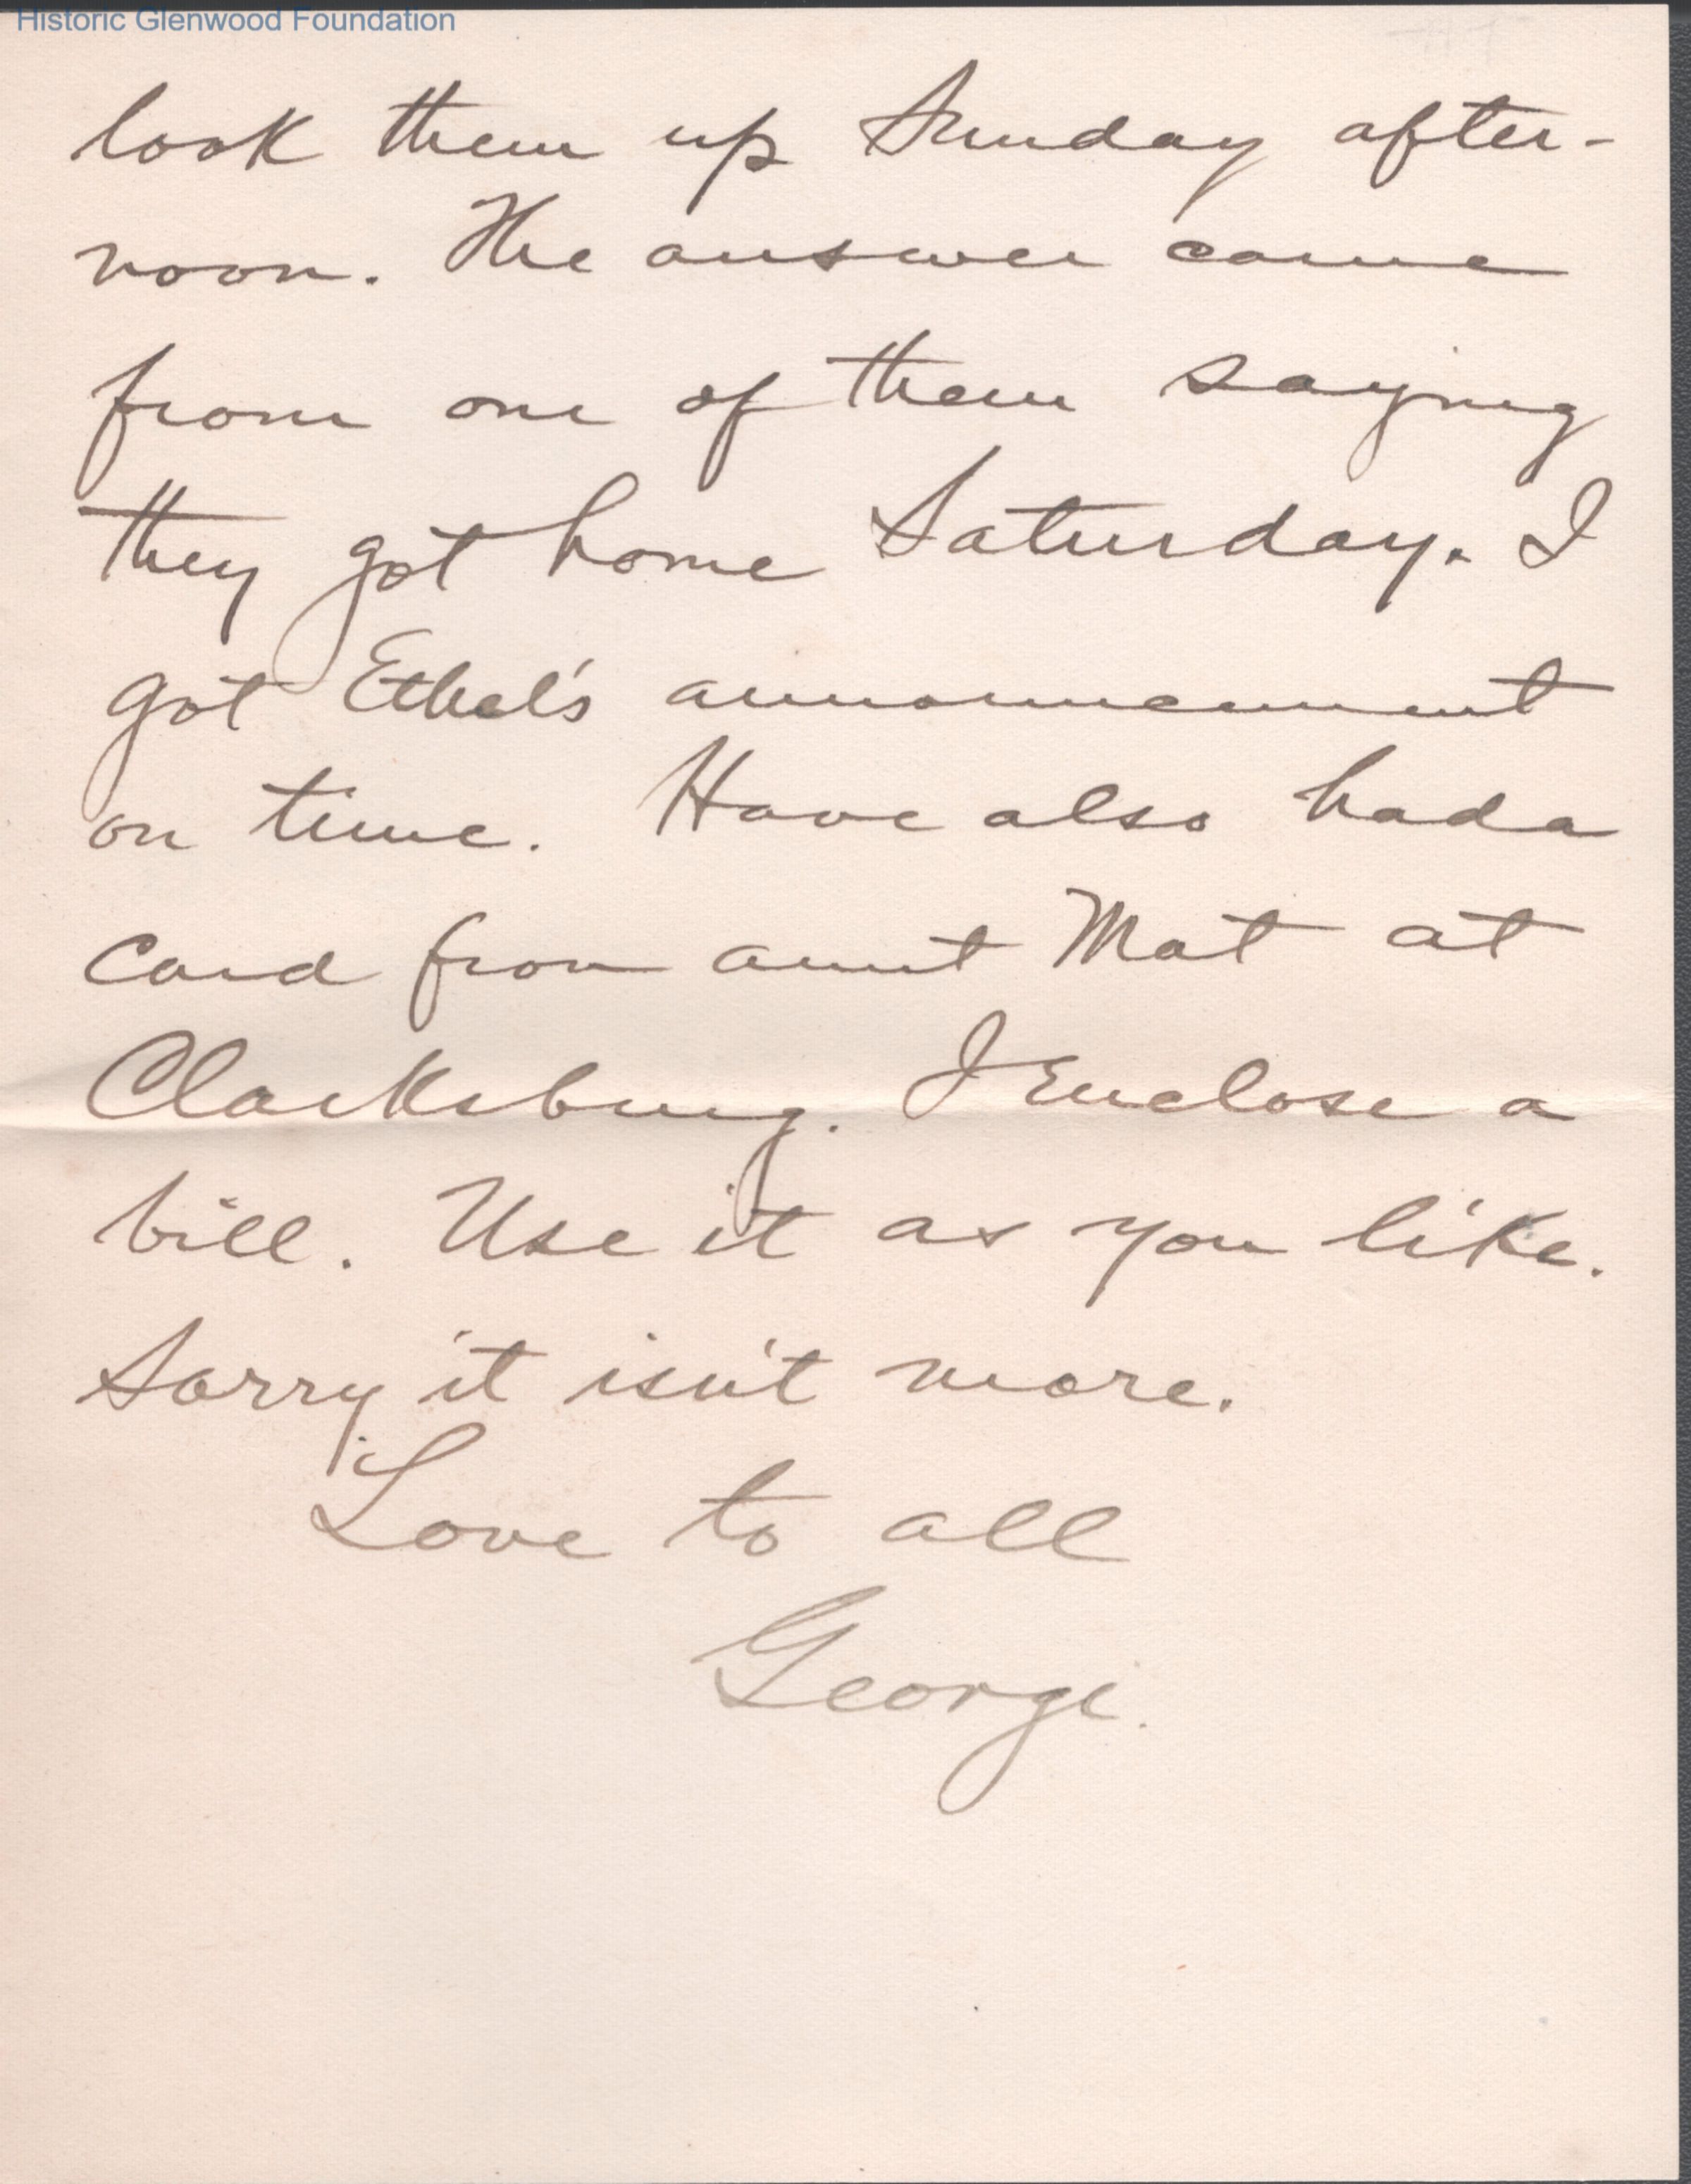 Historic Glenwood Foundation
look them up Sunday after-
noon. The answer came
from one of them saying
they got home Saturday. I
got Ethel's announcement
on time. Have also had a
card from aunt Mat at
Clarksburg. I enclose a
bill. Use it as you like.
Sorry it isn't more.
Love to all
George.